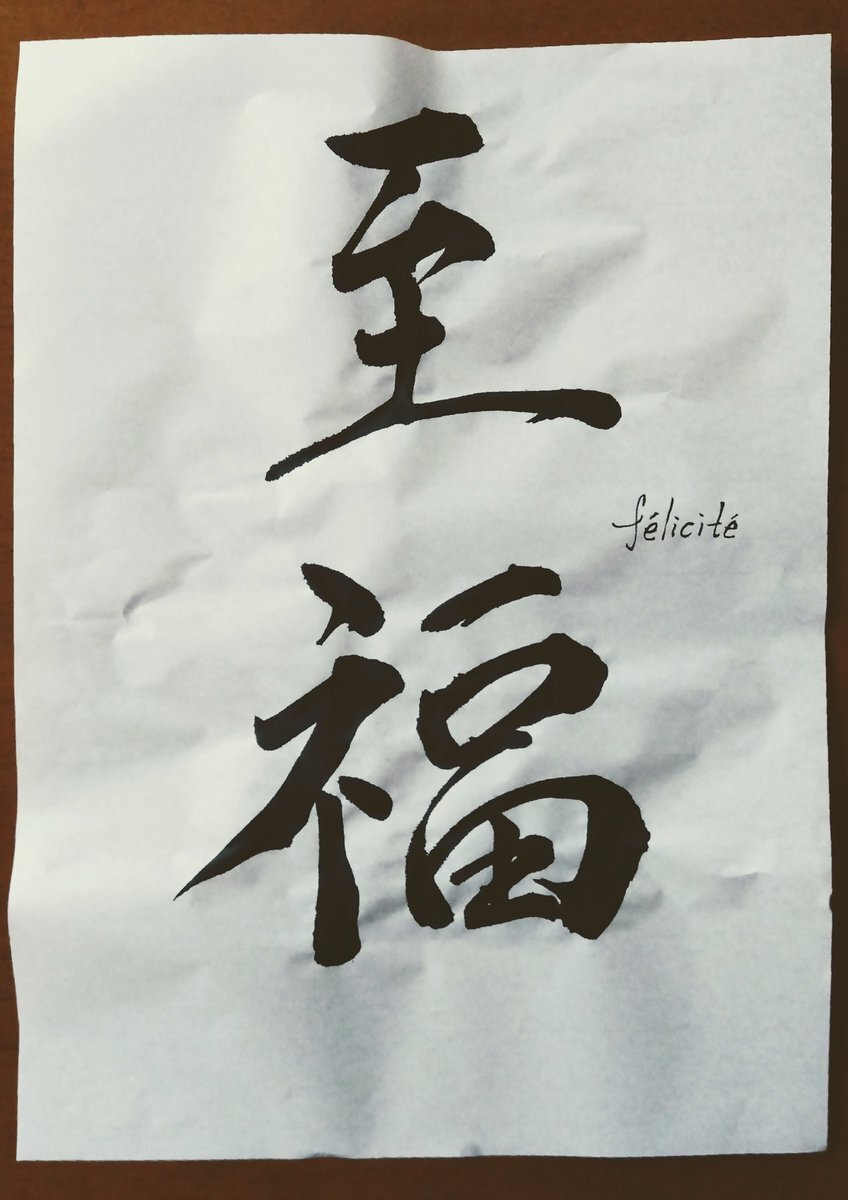 至福
félicité